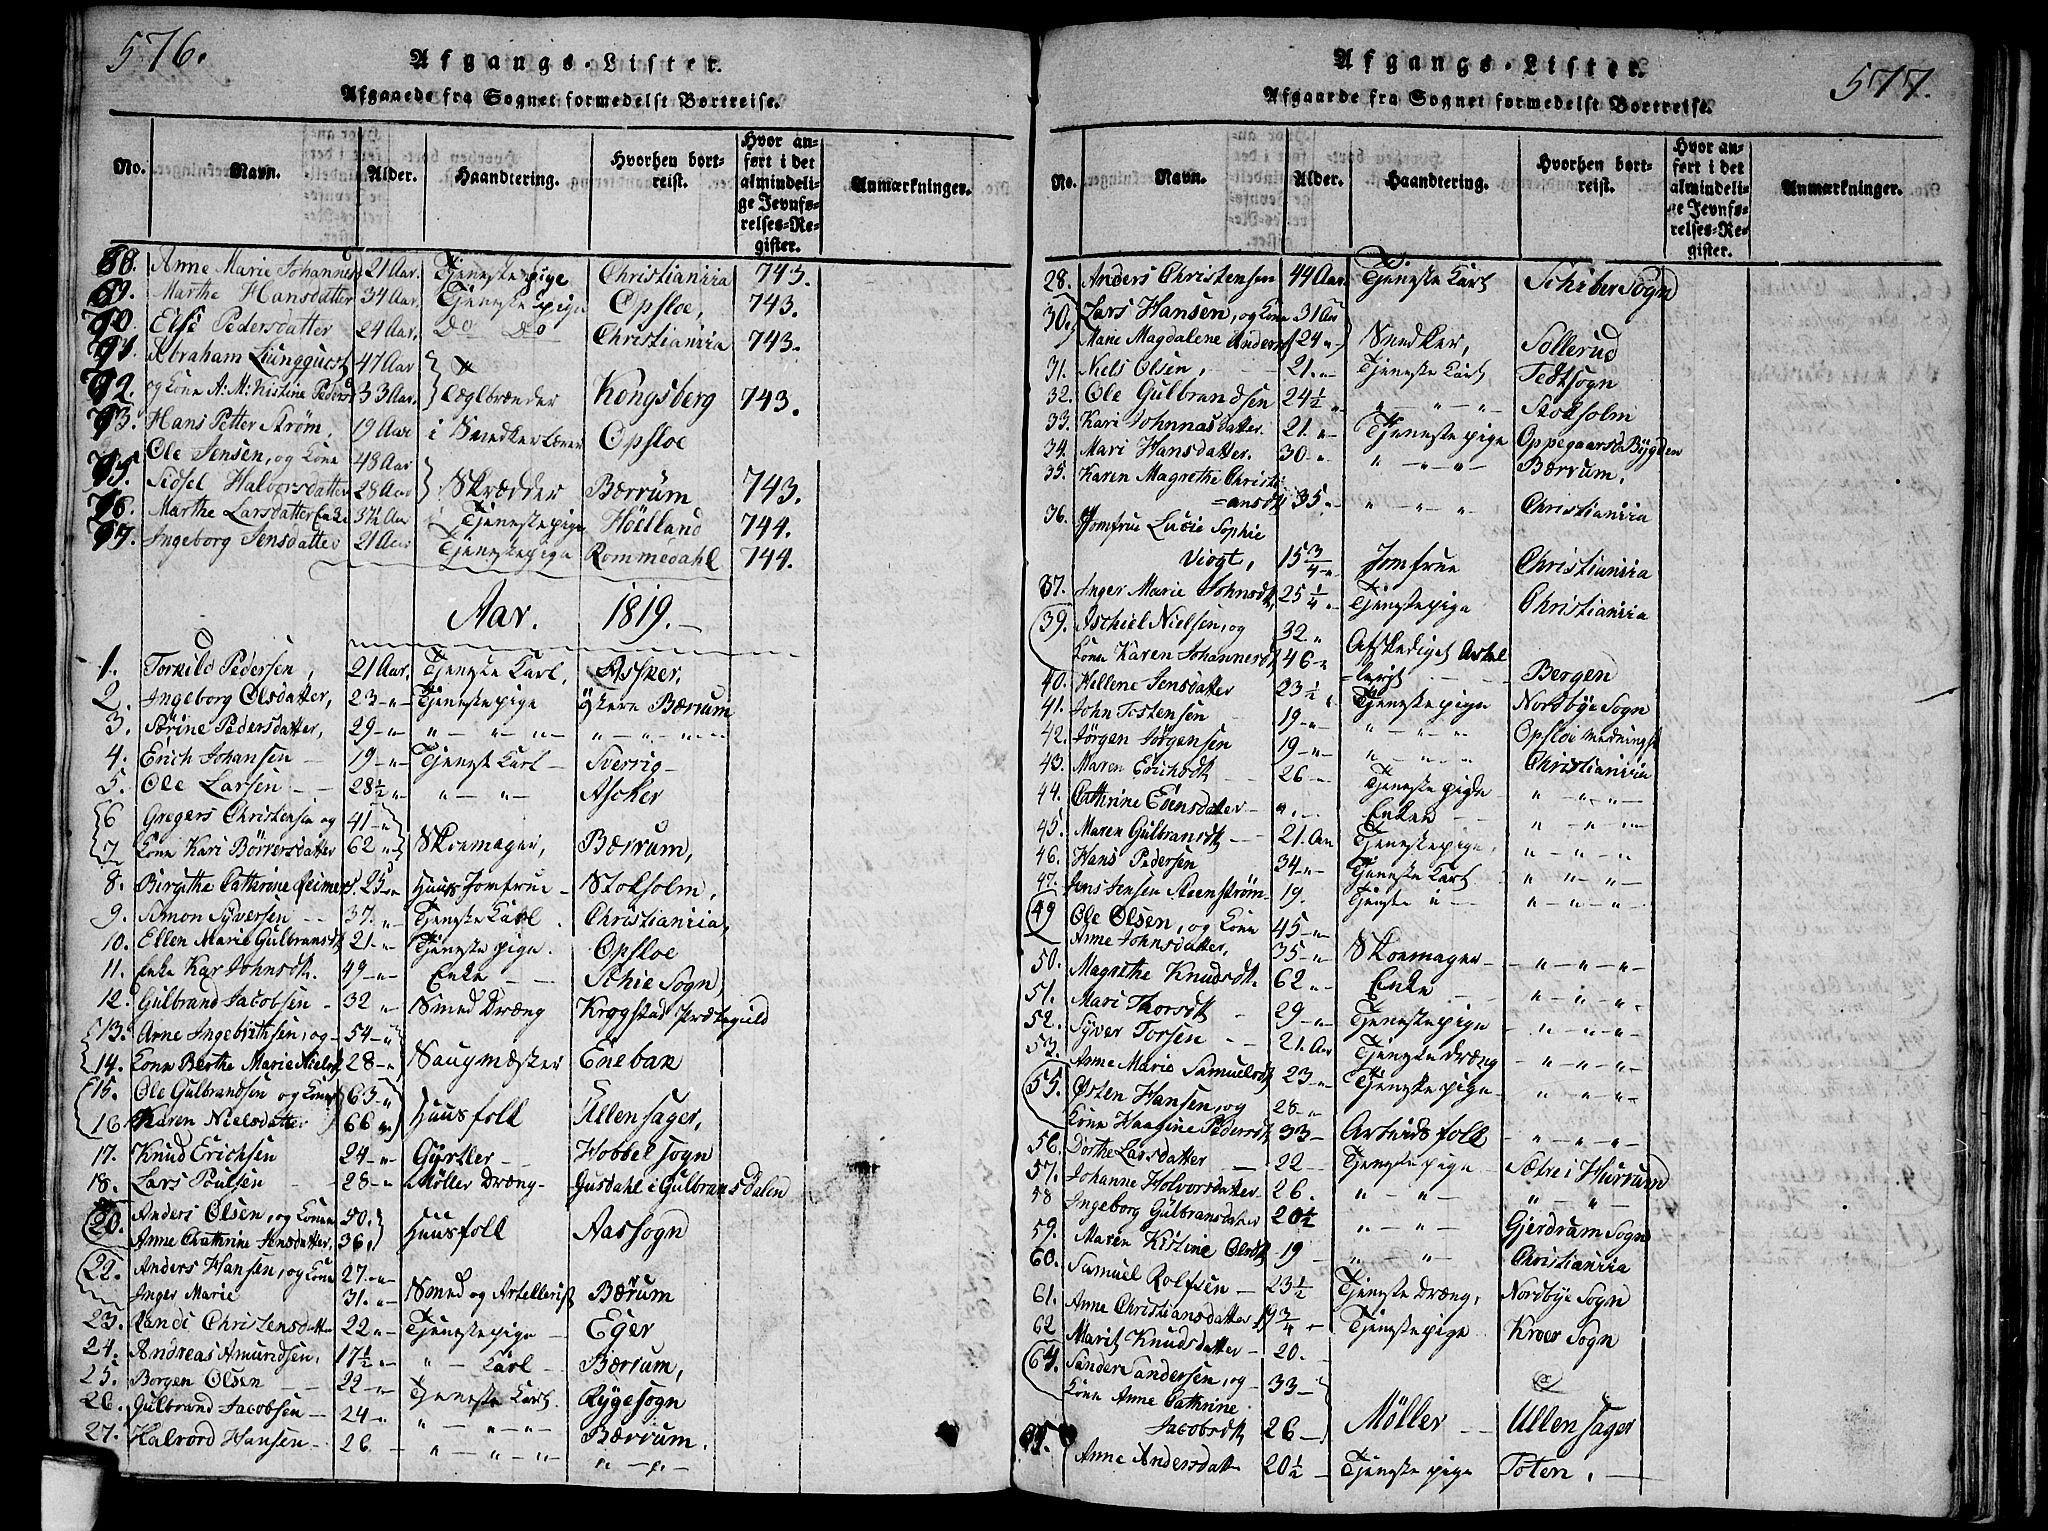 576.
Afgangs-Lister.
Afgaaede fra Sognet formedelst Bortreise.
No. Navn. Alder. Haandtering. Hvorhen bortreist. Hvor anført i det almindelige Jevnførelses-Register. Anmærkninger.
88. Anne Marie Johannesd 21 Aar. Tjenestepige Christiania 743.
89. Marthe Hansdatter 34 Aar. Tjenestepige Opsloe, 743.
90. Else Pedersdatter 24 Aar. Do Do Christiania 743.
91. Abraham Liungquest 47 Aar
92. og Kone A: M: Kistine Pedersd 33 Aar. Teglbrænder Kongsberg 743.
93. Hans Petter Strøm. 19 Aar i Snedkerlære Opsloe
Ole Jensen, og Kone 48 Aar
95. Sidsel Halvorsdatter 28 Aar Skrædder Bærrum 743.
96. Marthe Larsdatter Enke 37½ Aar Tjenestepige Höelland 744.
97. Ingeborg Jensdatter 21 Aar Tjenestepige Rommedahl 744.
Aar. 1819.
1. Torkild Pedersen, 21 Aar. Tjeneste Karl. Asker.
2. Ingeborg Olsdatter, 23 - " - Tjenestepige Bærrum
3. Sørine Pedersdatter, 29 - " " - " - " " - " - "
4. Erich Johansen 19 - " Tjenest Karl - Sverrig -
5. Ole Larsen - - 28½ " " - " - " Ascher
6 Gregers Christensen og 41 - "
7. Kone Kari Börresdatter 62 " Skoemager, Bærrum,
8. Birgithe Cathrine Reimers. 25 - " Huus Jomfrue - Stokholm,
9. Simon Syversen - - 37. " Tjeneste Karl. Christiania,
10. Ellen Marie Gulbransdt, 21 - " Tjeneste pige. Opsloe
11. Enke Kar Johnsdt. 49 - " - Enke - Schie Sogn,
12. Gulbrand Jacobsen - 32 " Smed Dræng Krogstad Præteguld
13. Arne Ingebrithsen, og - 54 - "
14. Kone Berthe Marie Nielsd 28 - " Saugmæster Enebak
15. Ole Gulbrandsen og Kone 63 - "
16 Karen Nielsdatter 66 " Huusfolk Ullensager,
17. Knud Erichsen 24 - " Gürtler - - Hobbel sogn
18. Lars Poulsen 28 - " Møller Dræng - Gusdahl i Gulbransdalen
20. Anders Olsen, og Konen 50.
Anne Cathrine Jensdatter, 36. Huusfolk Aassogn
22. Anders Hansen, og Kone 27. - " -
Inger Marie 31. " - Smed og Artellerist Bærum
23. Randi Christensdatter 22 " - Tjenestepige - Eger
24. Andreas Amundsen. 17½ " - " - Karl - Bærrum,
25. Borgen Olsen 22 - " Tjeneste Karl. Rygesogn
26. Gulbrand Jacobsen - 24 - " " - " - " - " Bærrum.
27. Halvord Hansen - 26 - " - " - " " - " -
577.
Afgangs-Lister.
Afgaaede fra Sognet formedelst Bortreise.
No. Navn. Alder. Haandtering. Hvorhen bortreist. Hvor anført i det almindelige Jevnførelses-Register. Anmærkninger.
28. Anders Christensen 44 Aar. Tjeneste Karl Schiber Sogn
30. Lars Hansen, og Kone 31 Aar
Marie Magdalene Andersd 24 " Snedker, Sollerud
31. Niels Olsen, - 21. " Tjeneste Karl Tedtsogn
32. Ole Gulbrandsen 24½ " " " - " - " Stokholm
33. Kari Johnnasdatter. 21. " Tjenestepige Oppegaards Bygden
34. Mari Hansdatter. 30 - " " - " - " Bærrum.
35. Karen Magrethe Christi
= ansdt 35 " " - " - " Christiania
36. Jomfrue Lucie Sophie
Viogt, 15¾ " Jomfrue Christiania
37. Inger Marie Johnsdt, 25¼ " Tjenestepige Christiania
39. Eschiel Nielsen, og 32 "
Kone Karen Johannesdt 46 - " Afskediget Artel
= lerist - - Bergen
40. Hellene Jensdatter 23½ " Tjenestepige Nordbye Sogn
41. John Tostensen 19 - " " - " - " Opsloe
42. Jørgen Jørgensen 19 - " " - " - " Christiania
43. Maren Erichsdt 26 " Tjeneste pige - " - " " -
44. Cathrine Evensdatter - " . Enke - - " - " " -
45. Maren Gulbransdt - - 21. Aar Tjenestepige. " - " - " -
46. Hans Pedersen 34 - " Tjeneste Karl " " - " -
47. Jens Jensen Steenstrøm - 19. Tjenste " - " - " - " -
49 Ole Olsen, og Kone 45 - "
Anne Johnsdatter, 35 - " Skoemager - - " - " - " -
50. Magrethe Knudsdt. 62 " Enke - - " - " - " -
51. Mari Thorsdt 29 - " Tjenestepige - " - " - " -
52. Syver Torsen - - 21. Aar Tjeneste Dræng - " - " - " -
53. Anne Marie Samuelsdt 23 - " Tjenestepige - - " - " - " -
55. Østen Hansen, og 28 - "
Kone Hansine Pedersdt 33 - Arbeids folk - " - " - " -
56. Dorthe Larsdatter - 22 - Tjeneste pige - Sætre i Hurrum
57. Johanne Holvorsdatter - 26. " - " - " " - "
58 Ingeborg Gulbransdatter 20½ " - " - Gjerdrum Sogn
59. Maren Kistine Olsdt, 19 - " " - Christiania
60. Samuel Rolfsen - 23½ - Tjeneste Dræng, Nordbye Sogn
61. Anne Christiansdatter 19¾ " Tjenestepige Kroer Sogn
62 Marit Knudsdatter - 20. -
64. Sander Sandersen, og - 33 -
Kone Anne Cathrine
Jacobsdt 26 - Møller - - Ullensager
65. Anne Andersdat 20½ - Tjeneste pige Toten. -